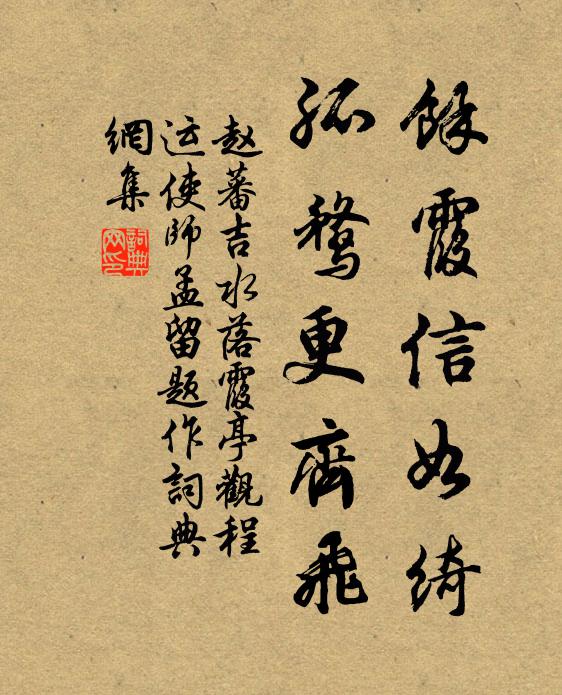 餘霞信如綺
孤鶩更齊飛
赵蕃吉水落霞亭觀程
运使師孟留题作詞典
網集
詞典
网印